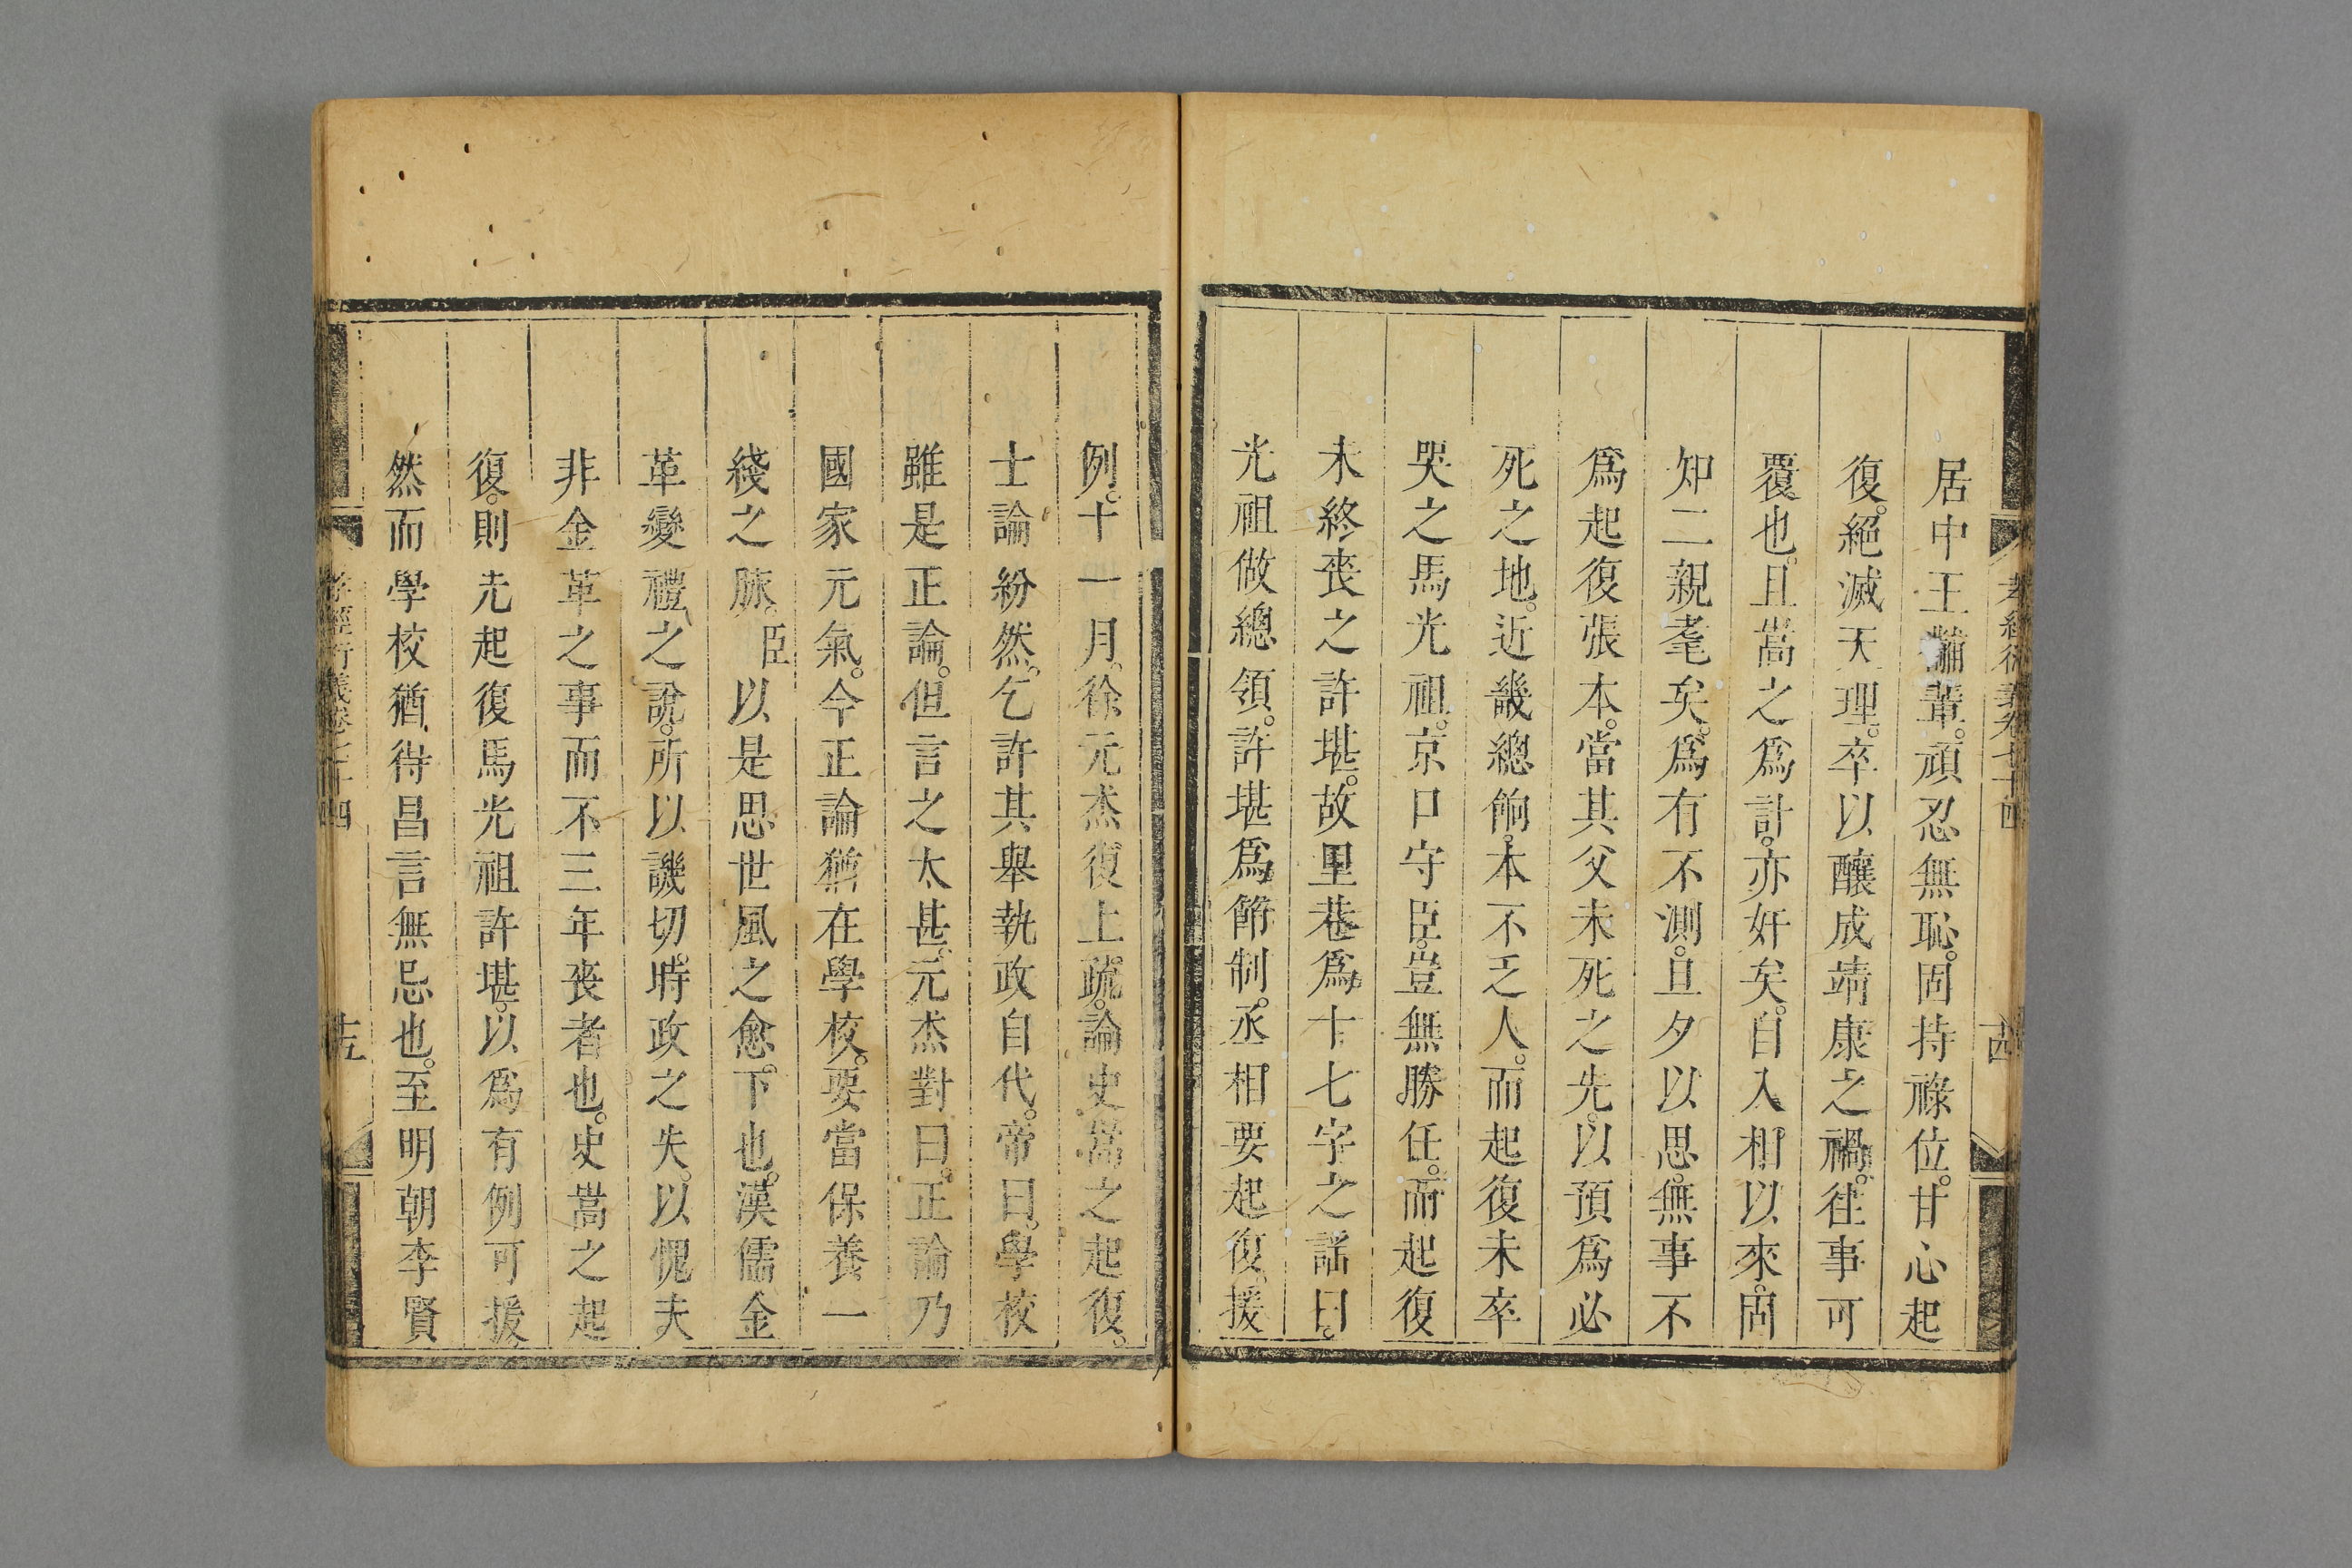 孝經衍義卷七十四
十四
居中王黼輩。頑忍無恥。固持祿位。甘心起
復。絕滅天理。卒以釀成靖康之禍。往事可
覆也。且嵩之爲計。亦奸矣。自入相以來。固
知二親耄矣。爲有不測。旦夕以思。無事不
爲起復張本。當其父未死之先。以預爲必
死之地。近畿總餉。本不乏人。而起復未卒
哭之馬光祖。京口守臣。豈無勝任。而起復
未終喪之許堪。故里巷爲十七字之謠曰。
光祖做總領。許堪爲節制。丞相要起復援
例。十一月。徐元杰復上疏。論史嵩之起復。
士論紛然。乞許其舉執政自代。帝曰。學校
雖是正論。但言之太甚。元杰對曰。正論乃
國家元氣。今正論猶在學校。要當保養一
綫之脉。臣以是思世風之愈。下也。漢儒金
革變禮之說。所以譏切。時政之失。以愧夫
非金革之事而不三年喪者也。史嵩之起
復。則先起復馬光祖許堪。以爲有例可援。
然而學校猶得昌言無忌也。至明朝李賢
孝經衍義卷七十四
十五